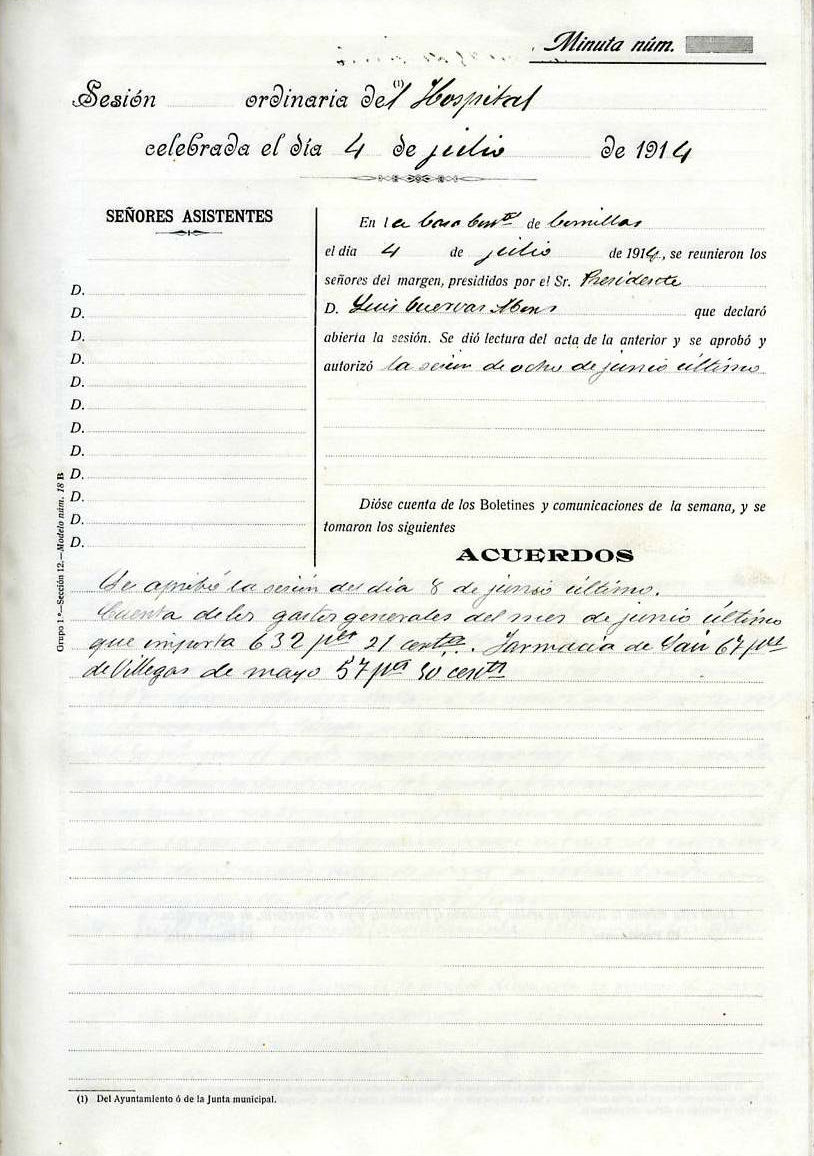 Minuta núm.
Sesión ordinaria del (1) Hospital
celebrada el día 4 de julio de 1914
SEÑORES ASISTENTES
D.
D.
D.
D.
D.
D.
D.
D.
D.
D.
D.
D.
En la Casa Consta de Comillas
el día 4 de julio de 1914, se reunieron los
señores del margen, presididos por el Sr. Presidente
D. Luis Cuervas Mons que declaró
abierta la sesión. Se dió lectura del acta de la anterior y se aprobó y
autorizó la sesión de ocho de junio último
Dióse cuenta de los Boletines y comunicaciones de la semana, y se
tomaron los siguientes
ACUERDOS
Se aprobó la sesión del día 8 de junio último.
Cuenta de los gastos generales del mes de junio último
que importa 632 ptas 21 cents. Farmacia de 67 ptas
de Villegas de mayo 57 pta 50 cents
Grupo 1.º—Sección 12.—Modelo núm. 18 B
(1) Del Ayuntamiento ó de la Junta municipal.